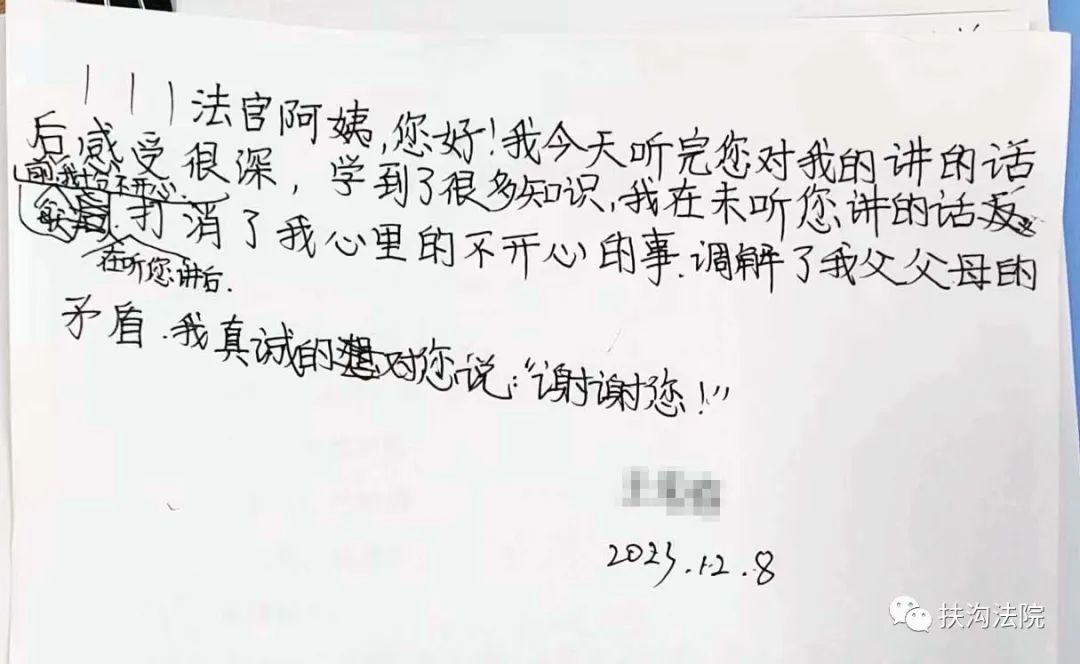 法官阿姨,您好!我今天听完您对我的讲的话
后感受很深,学到了很多知识,我在未听您讲的话
前我十分不开心.
打消了我心里的不开心的事.调解了我父父母的
在听您讲后.
矛盾.我真诚的对您说:“谢谢您!”
2023.12.8
扶沟法院